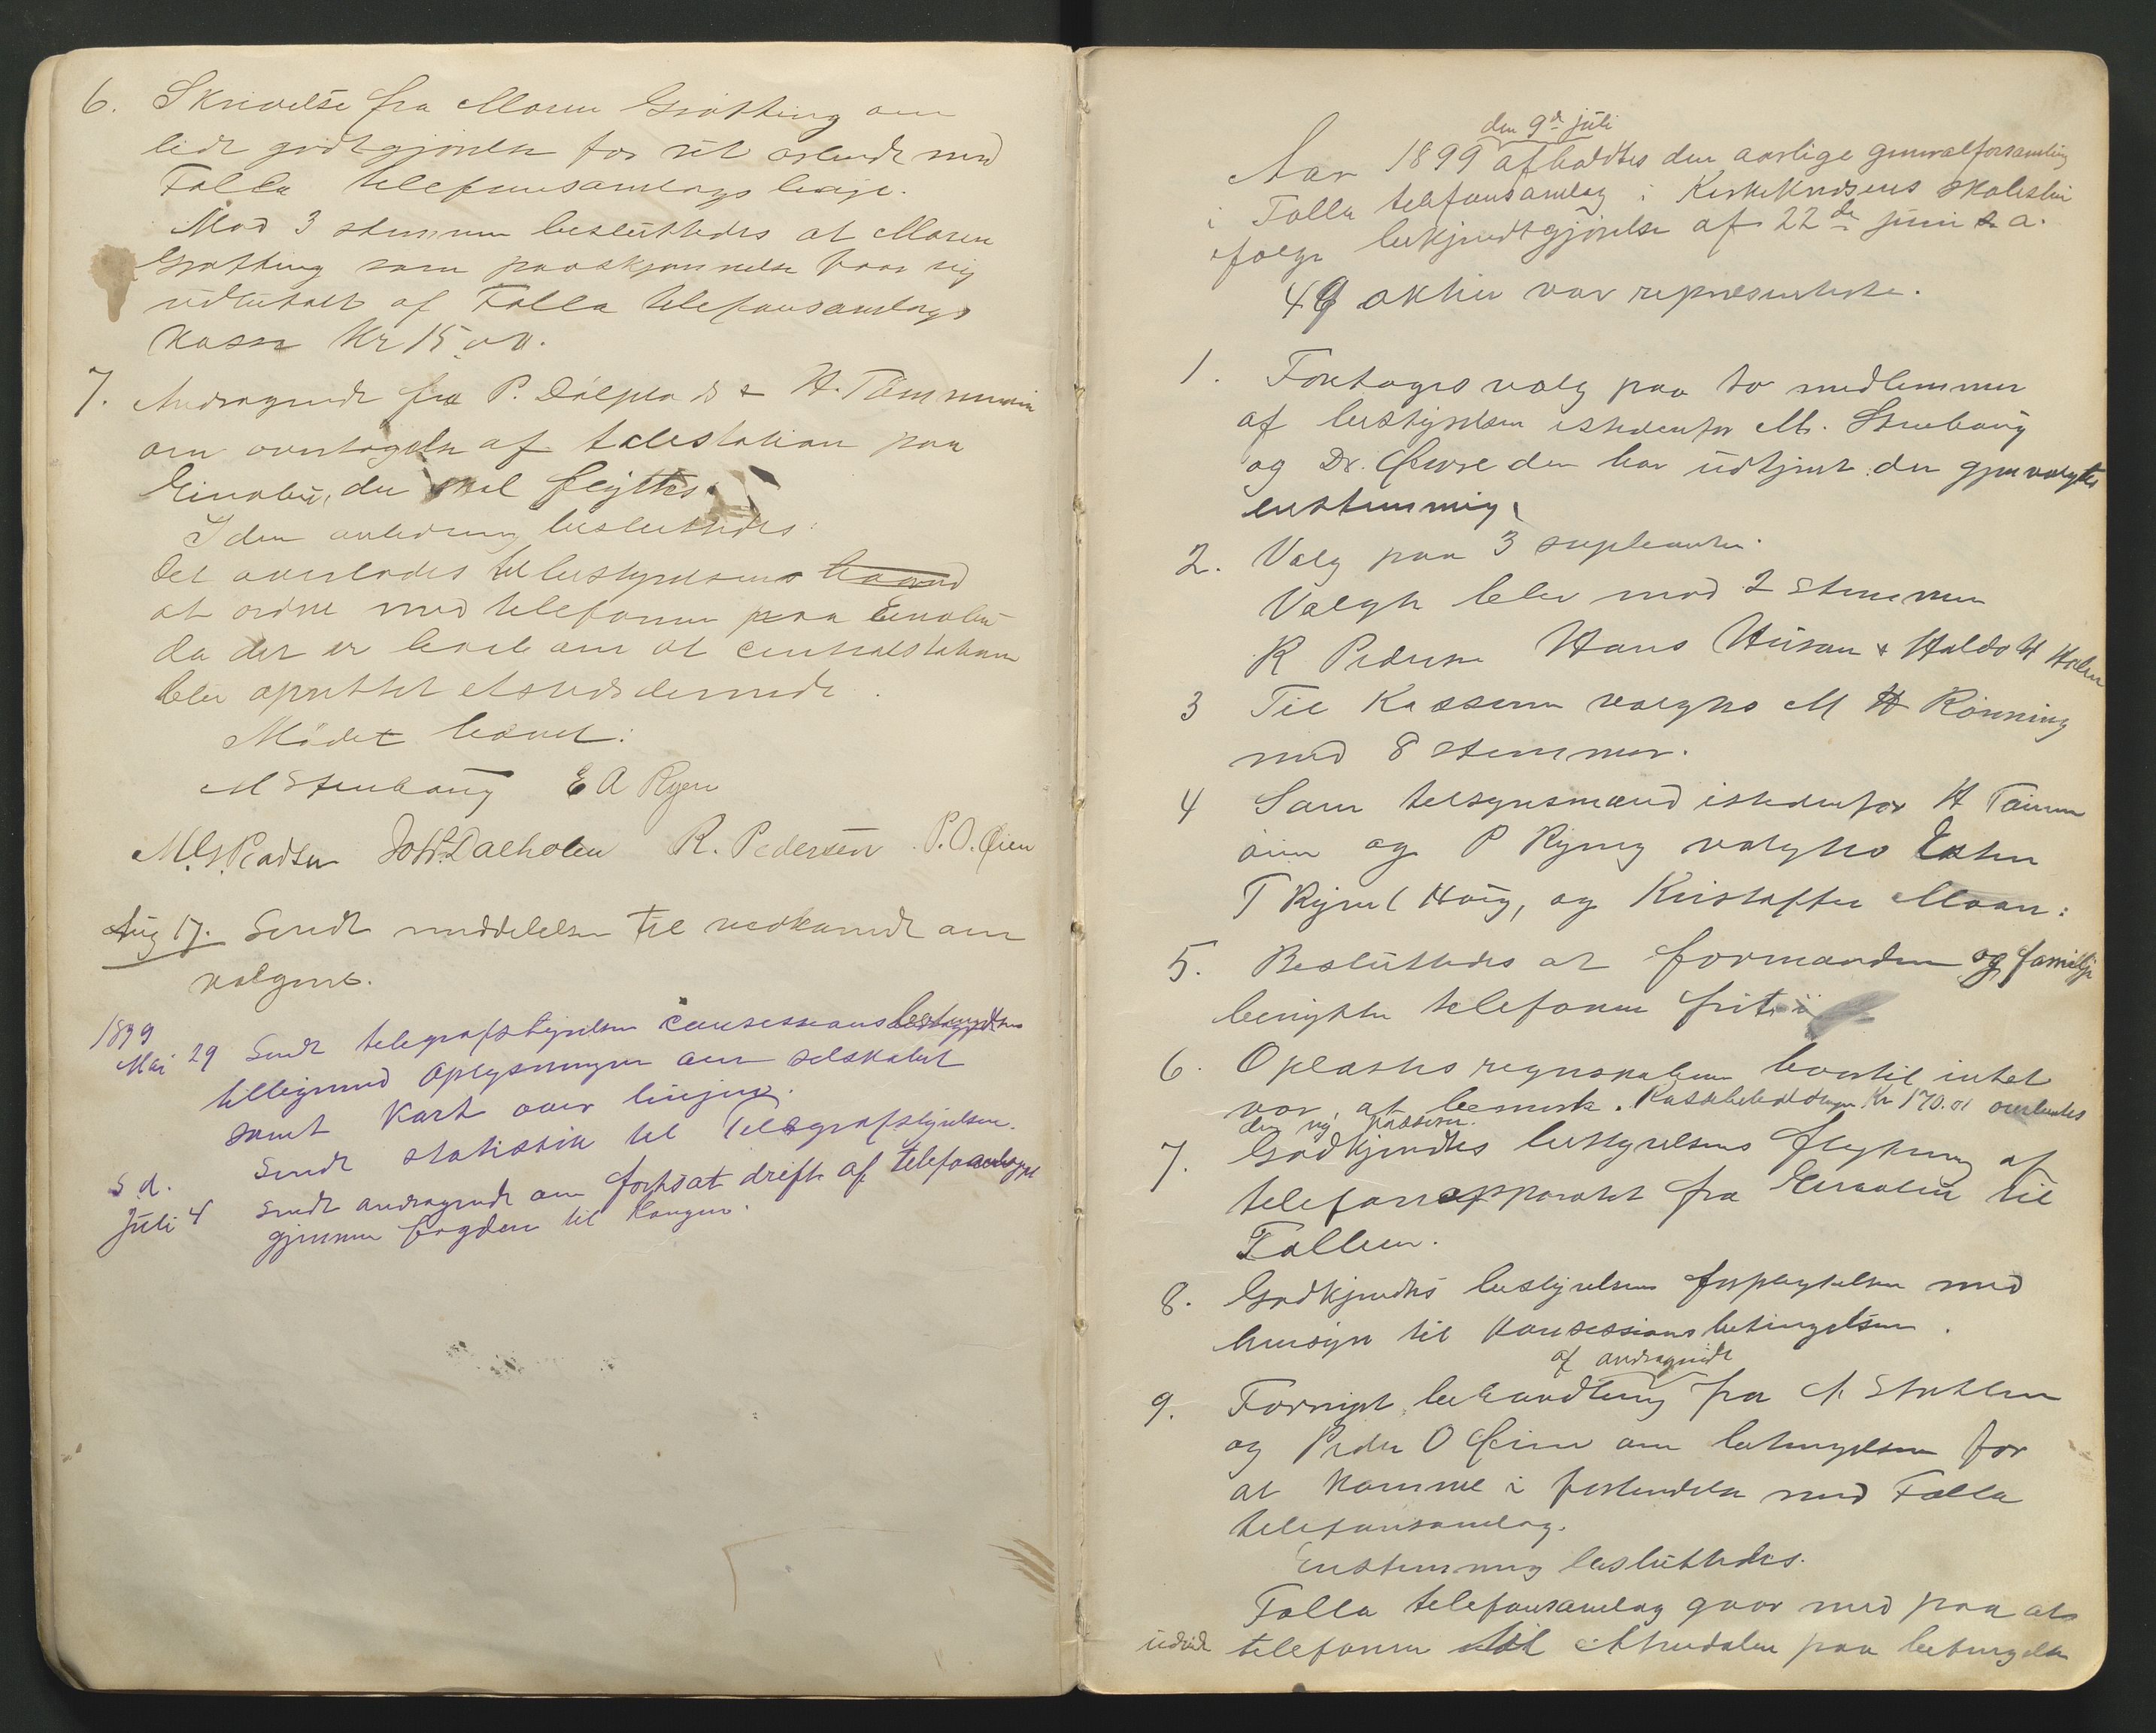 6. Skrivelse fra Maren Grøtting om
lidt godtgjørelse for sit arbeide med
Folla telefonsamlags linje.
Mod 3 stemmer besluttedes at Maren
Grøtting som paaskjønnelse faar sig
udbetalt af Folla telefonsamlags
kasse Kr 15,00.
7. Andragende fra P. Dølplads & H.
om overtagelse af talestation paa
Einabu, der skal fløittes.
I den anledning besluttedes:
Det overlades til bestyrelsens haand
at ordne med telefonen paa Einabu
da der er tale om at centralstation
blir oprettet etsteds dernede.
Mødet hævet:
M Stenboug E A Ryen
Joh. Dalholen R. Pedersen P. O. Øien
Aug 17. Sendt meddelelse til vedkomende om
valgene.
1899
Mai 29 Sendt telegrafstyrelsen
tilligemed oplysninger om selskabet
samt Kart over linjen.
s d. Sendt statistik til Telegrafstyrelsen.
Juli 4 Sendt andragende om fortsat drift af telefonanlægget
gjennem fogden til Kongen.
den 9de juli
Aar 1899 afholdtes den aarlige generalforsamling
i Folla telefonsamlag i Kirkekredsens skolestue
ifølge bekjendtgjørelse af 22de juni s. a.
49 aktier var repræsenterte.
1. Foretoges valg paa to medlemmer
af bestyrelsen istedenfor M. Stenboug
og Dr. der har udtjent der gjenvalgtes
enstemmig.
2. Valg paa 3 supleanter.
Valgte blev med 2 stemmer
R Pedersen Hans Husan & Haldo H Holen
3 Til Kasserer valgtes M H Rønning
med 8 stemmer.
4 Som tilsynsmænd istedenfor H
og P Ryeng valgtes Esten
T Ryen Houg, og Kristoffer Moan:
5. Besluttedes at formanden og familje
benytter telefonen frit
6. Oplæstes regnskaben hvortil intet
var at bemerke. Kassebeholdningen Kr 170.01 overleveredes
den ny kasserer.
7. Godkjendtes bestyrelsens flytning af
telefonapparatet fra Einabu til
Folldal.
8. Godkjendtes bestyrelsens forpligtelser med
hensyn til Konsessionsbetingelsen.
af andragende
9. Fornyet behandling fra
og Peder O Øien om betingelsen for
at komme i forbindelse med Folla
telefonsamlag.
Enstemmig besluttedes.
Folla telefonsamlag gaar med paa at
udvide telefonen til Atnedalen paa betingelse